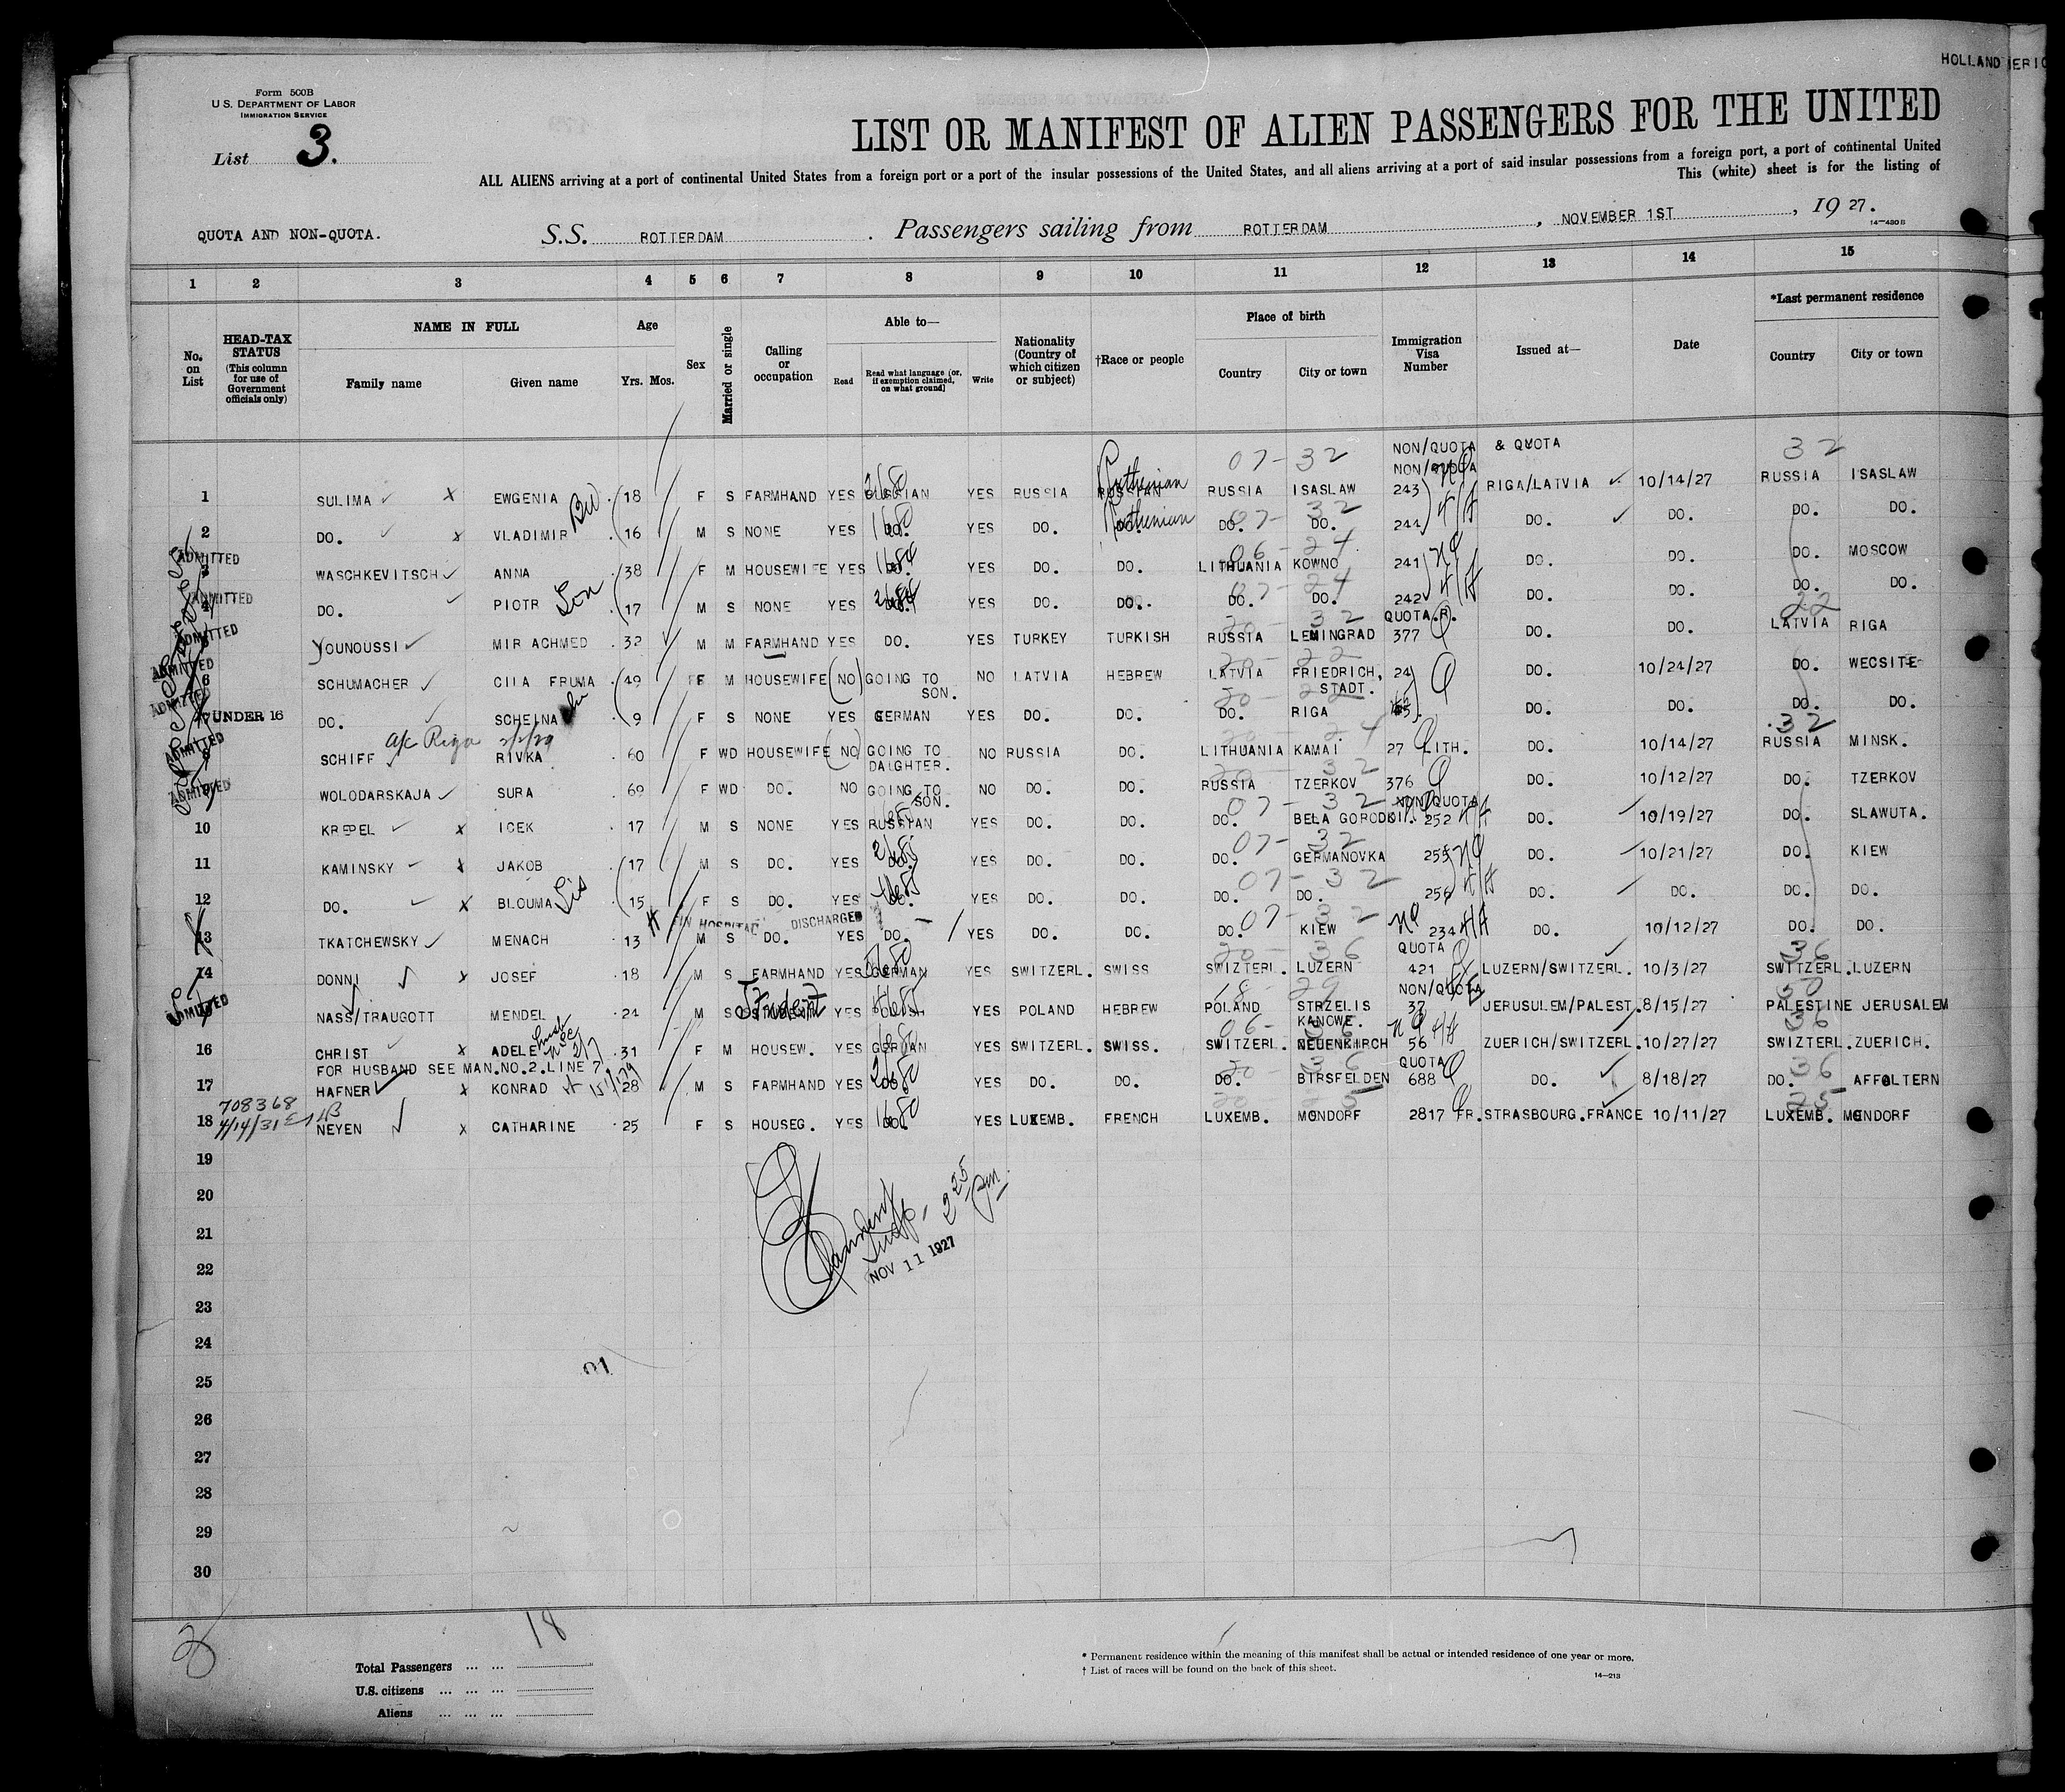 HOLLAND
Form 500B
U.S. DEPARTMENT OF LABOR
IMMIGRATION SERVICE
List 3.
LIST OR MANIFEST OF ALIEN PASSENGERS FOR THE UNITED
ALL ALIENS arriving at a port of continental United States from a foreign port or a port of the insular possessions of the United States, and all aliens arriving at a port of said insular possessions from a foreign port, a port of continental United
This (white) sheet is for the listing of
QUOTA AND NON-QUOTA. S.S. ROTTERDAM . Passengers sailing from ROTTERDAM , NOVEMBER 1ST , 19 27.
14—480B
1 2 3 4 5 6 7 8 9 10 11 12 13 14 15
No. on List
HEAD-TAX STATUS (This column for use of Government officials only)
NAME IN FULL
Family name Given name
Age
Yrs. Mos.
Sex
Married or single
Calling or occupation
Able to—
Read Read what language (or, if exemption claimed, on what ground) Write
Nationality (Country of which citizen or subject)
†Race or people
Place of birth
Country City or town
Immigration Visa Number
Issued at—
Date
*Last permanent residence
Country City or town
NON/QUOTA & QUOTA
07-32 NON/QUOTA 32
1 SULIMA X EWGENIA 18 F S FARMHAND YES RUSSIAN YES RUSSIA RUSSIAN Ruthenian RUSSIA ISASLAW 243 RIGA/LATVIA 10/14/27 RUSSIA ISASLAW
2 DO. X VLADIMIR 16 M S NONE YES DO. YES DO. DO. Ruthenian DO. DO. 244 DO. DO. DO. DO.
ADMITTED 3 WASCHKEVITSCH ANNA 38 F M HOUSEWIFE YES DO. YES DO. DO. LITHUANIA KOWNO 241 DO. DO. DO. MOSCOW
ADMITTED 4 DO. PIOTR Son 17 M S NONE YES DO. YES DO. DO. DO. DO. 242 DO. DO. DO. DO.
QUOTA.R.
ADMITTED 5 YOUNOUSSI MIR ACHMED 32 M M FARMHAND YES DO. YES TURKEY TURKISH RUSSIA LEMINGRAD 377 DO. DO. LATVIA RIGA
ADMITTED 6 SCHUMACHER CILA FRUMA 49 F M HOUSEWIFE (NO) GOING TO SON. NO LATVIA HEBREW LATVIA FRIEDRICH, STADT. 24 DO. 10/24/27 DO. WECSITE
ADMITTED 7 UNDER 16 DO. SCHEINA 9 F S NONE YES GERMAN YES DO. DO. DO. RIGA DO. DO. DO. DO.
a/c Riga
ADMITTED 8 SCHIFF RIVKA 60 F WD HOUSEWIFE (NO) GOING TO DAUGHTER. NO RUSSIA DO. LITHUANIA KAMAI 27 LITH. DO. 10/14/27 RUSSIA MINSK.
ADMITTED 9 WOLODARSKAJA SURA 69 F WD DO. NO GOING TO SON. NO DO. DO. RUSSIA TZERKOV 376 DO. 10/12/27 DO. TZERKOV
NON/QUOTA
10 KREPEL X ICEK 17 M S NONE YES RUSSIAN YES DO. DO. DO. BELA GORODKI. 252 DO. 10/19/27 DO. SLAWUTA.
11 KAMINSKY X JAKOB 17 M S DO. YES DO. YES DO. DO. DO. GERMANOVKA 255 DO. 10/21/27 DO. KIEW
12 DO. X BLOUMA Sis 15 F S DO. YES DO. YES DO. DO. DO. DO. 256 DO. DO. DO. DO.
IN HOSPITAL DISCHARGED
13 TKATCHEWSKY MENACH 13 M S DO. YES DO. YES DO. DO. DO. KIEW 234 DO. 10/12/27 DO. DO.
QUOTA
14 DONNI X JOSEF 18 M S FARMHAND YES GERMAN YES SWITZERL. SWISS SWIZTERL. LUZERN 421 LUZERN/SWITZERL. 10/3/27 SWITZERL. LUZERN
NON/QUOTA
ADMITTED 15 NASS/TRAUGOTT MENDEL 24 M S Student YES YES POLAND HEBREW POLAND STRZELIS KANCWE. 37 JERUSULEM/PALEST. 8/15/27 PALESTINE JERUSALEM
16 CHRIST X ADELE 31 F M HOUSEW. YES GERMAN YES SWITZERL. SWISS. SWITZERL. NEUENKIRCH 56 ZUERICH/SWITZERL. 10/27/27 SWIZTERL. ZUERICH.
FOR HUSBAND SEE MAN.NO.2.LINE 7. QUOTA
17 HAFNER X KONRAD 28 M S FARMHAND YES DO. YES DO. DO. DO. BIRSFELDEN 688 DO. 8/18/27 DO. AFFOLTERN
708368
4/14/31
18 NEYEN X CATHARINE 25 F S HOUSEG. YES DO. YES LUXEMB. FRENCH LUXEMB. MONDORF 2817 FR. STRASBOURG.FRANCE 10/11/27 LUXEMB. MONDORF
19
20
21
22
NOV 11 1927
23
24
25
26
27
28
29
30
18
Total Passengers ... ...
U.S. citizens ... ... ...
Aliens ... ... ...
* Permanent residence within the meaning of this manifest shall be actual or intended residence of one year or more.
† List of races will be found on the back of this sheet.
14—213